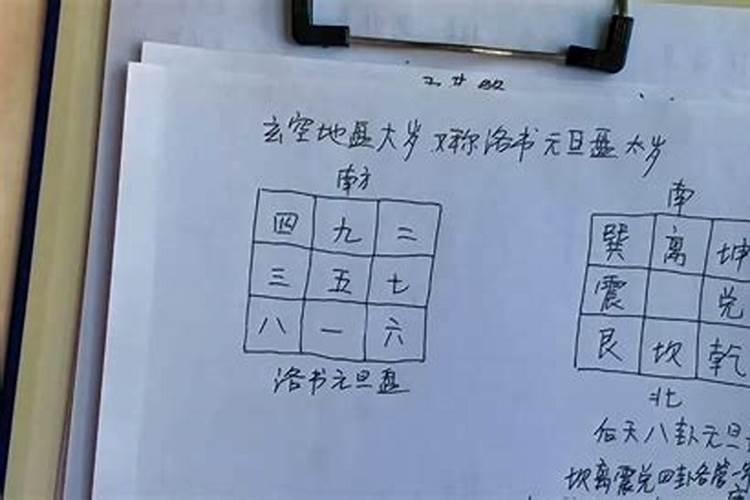 玄空地盘太岁又称洛书元旦盘太岁
南方
四 九 二
三 五 七
八 一 六
洛书元旦盘
南
巽 离 坤
震 兑
艮 坎 乾
北
后天八卦元旦
坎离震兑四卦各管一